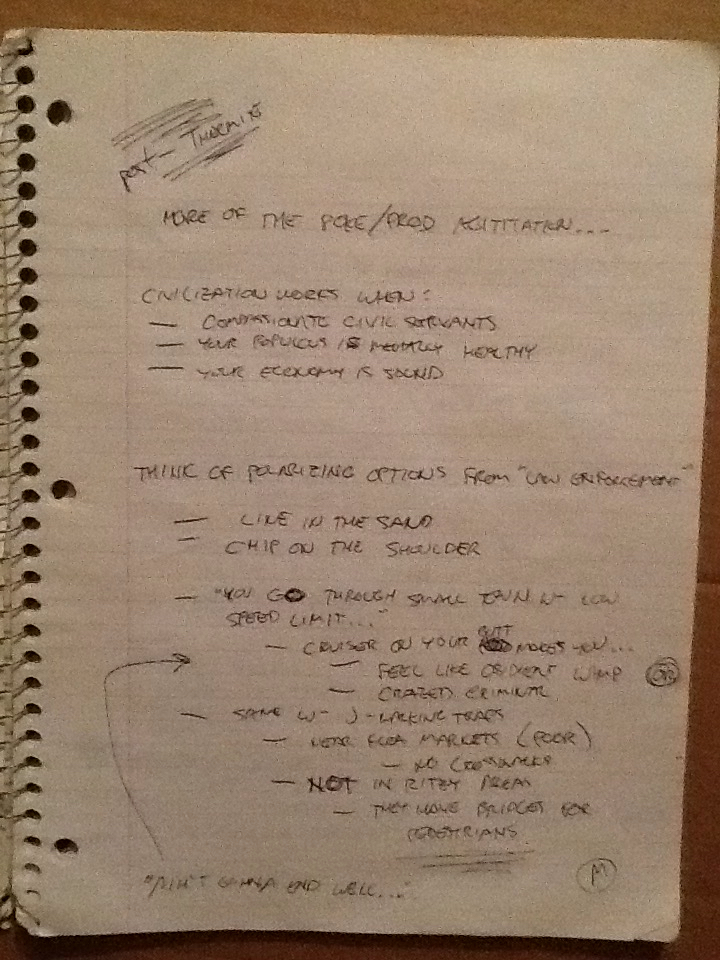 post-
MORE OF THE POKE/PROD AGITITATION...
CIVILIZATION WORKS WHEN:
— COMPASSIONATE CIVIL SERVANTS
— YOUR POPULOUS IS MENTALLY HEALTHY
— YOUR ECONOMY IS SOUND
THINK OF POLARIZING OPTIONS FROM "LAW ENFORCEMENT"
— LINE IN THE SAND
— CHIP ON THE SHOULDER
— "YOU GO THROUGH SMALL TOWN W- LOW
SPEED LIMIT..."
— CRUISER ON YOUR BUTT MAKES YOU...
— FEEL LIKE OBIDIENT WIMP OR
— CRAZED CRIMINAL
— SAME W- J-WALKING TRAPS
— NEAR FLEA MARKETS (POOR)
— NO CROSSWALKS
— NOT IN RITZY AREAS
— THEY HAVE BRIDGES FOR
PEDESTRIANS
"AIN'T GONNA END WELL..."
M